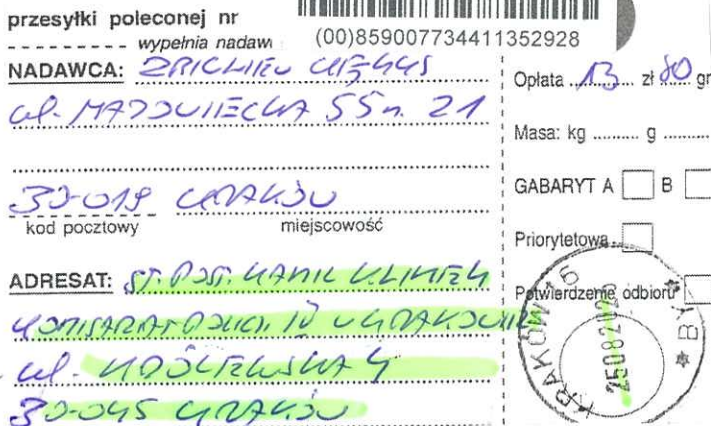 przesyłki poleconej nr
wypełnia nadaw
(00)859007734411352928
NADAWCA: ZBIGNIEW
ul. MAZOWIECKA 55 m. 21
30-019 KRAKÓW
kod pocztowy miejscowość
ADRESAT: ST. POST. KAMIL KLIMEK
KOMISARIAT POLICJI IV W KRAKOWIE
ul. KRÓLEWSKA 4
30-045 KRAKÓW
Opłata 13 zł 80 gr
Masa: kg ......... g .........
GABARYT A B
Priorytetowa
Potwierdzenie odbioru
KRAKÓW